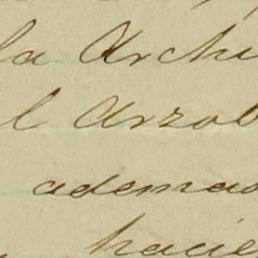 la Archi
l Arzob
ademas
hacie